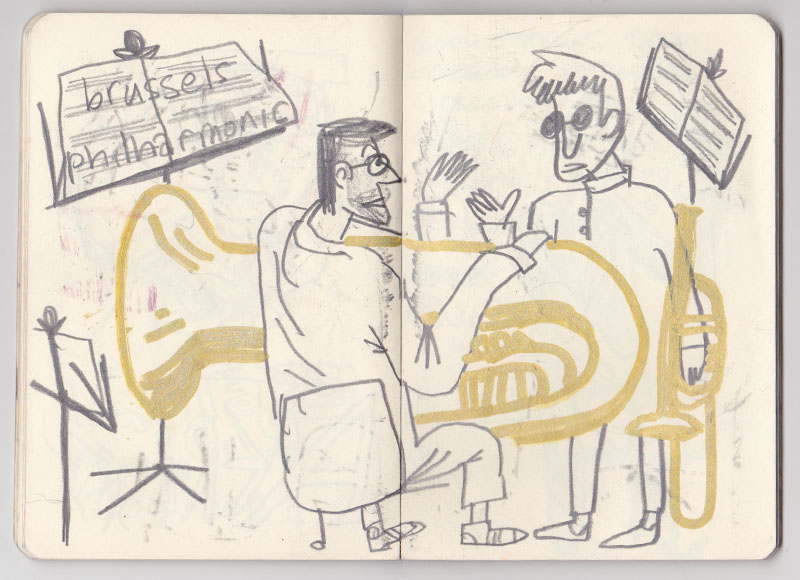 brussels
philharmonic